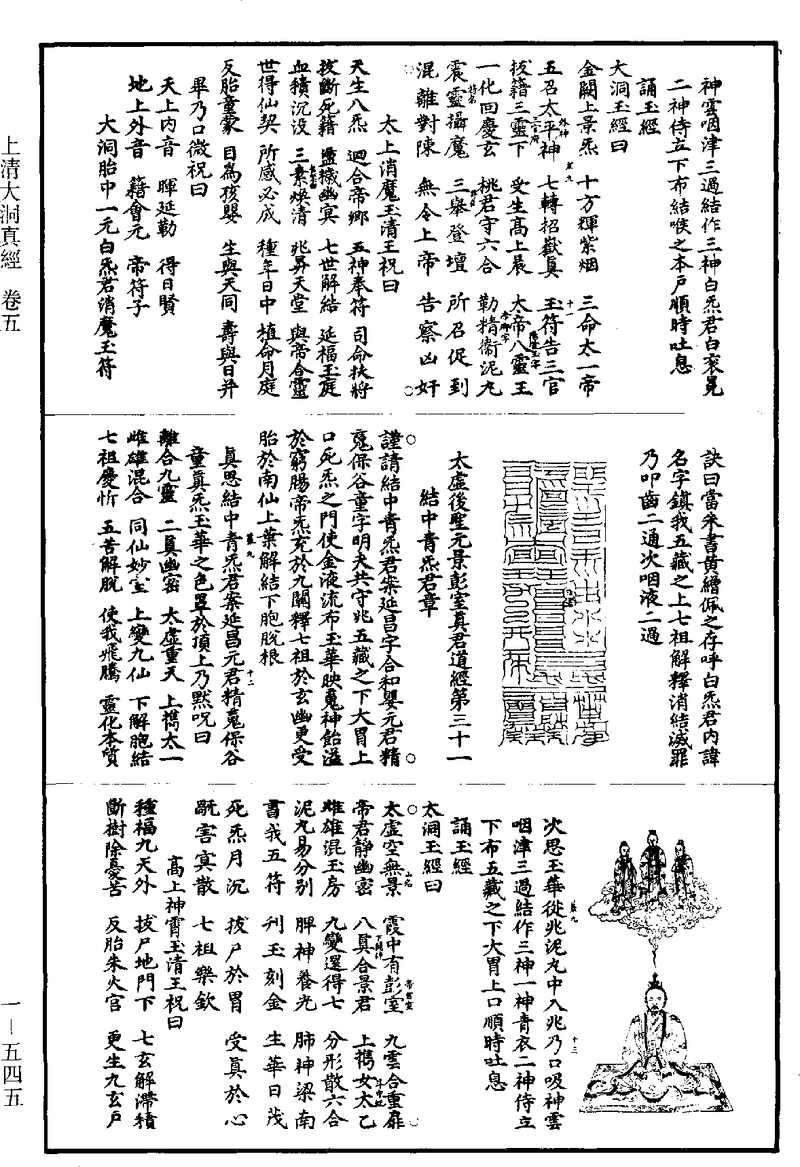 上清大洞真經 卷五
一—五四五
神雲咽津三過結作三神白炁君白衮冕
二神侍立下布結喉之本戶順時吐息
誦玉經
大洞玉經曰
金闕上景炁 十方輝紫烟 三命太一帝
五召太平神 七轉招嶽真 玉符告三官
拔籍三靈下 受生高上晨 大帝八靈王
一化回慶玄 桃君守六合 勒精衞泥丸
震靈攝魔 三舉登壇 所召促到
混離對陳 無令上帝 告察凶奸
太上消魔玉清王祝曰
天生八炁 迴合帝鄉 五神奉符 司命扶將
拔斷死籍 盪穢幽冥 七世解結 延福玉庭
血積沉没 三素煥清 兆昇天堂 與帝合靈
世得仙契 所感必成 種年日中 植命月庭
反胎童蒙 目為孩嬰 生與天同 壽與日并
畢乃口微祝曰
天上内音 暉延勒 得日賢
地上外音 籍會元 帝符子
大洞胎中一元白炁君消魔玉符
訣曰當朱書黄繒佩之存呼白炁君内諱
名字鎮我五藏之上七祖解釋消結滅罪
乃叩齒二通次咽液二過
太虛後聖元景彭室真君道經第三十一
結中青炁君章
謹請結中青炁君案延昌字合和嬰元君精
䰟保谷童字明夫共守兆五藏之下大胃上
口死炁之門使金液流布玉華映䰟神飴溢
於窮腸帝炁充於九關釋七祖於玄幽更受
胎於南仙上葉解結下胞脫根
真思結中青炁君案延昌元君精䰟保谷
童真炁玉華之色罩於頂上乃默呪曰
離合九靈 二真幽密 太虛重天 上携太一
雌雄混合 同仙妙室 上變九仙 下解胞結
七祖慶忻 五苦解脫 使我飛騰 靈化本質
次思玉華從兆泥丸中入兆乃口吸神雲
咽津三過結作三神一神青衣二神侍立
下布五藏之下大胃上口順時吐息
誦玉經
大洞玉經曰
太虛空無景 霞中有彭室 九雲合重扉
帝君靜幽密 八真合景君 上携女太乙
雌雄混玉房 九變還得七 分形散六合
泥丸易分别 脾神養光 肺神梁南
書我五符 刊玉刻金 生華日茂
死炁月沉 拔尸於胃 受真於心
翫害寞散 七祖樂欽
高上神霄玉清王祝曰
種福九天外 拔尸地門下 七玄解滯積
斷樹除憂苦 反胎朱火官 更生九玄戶